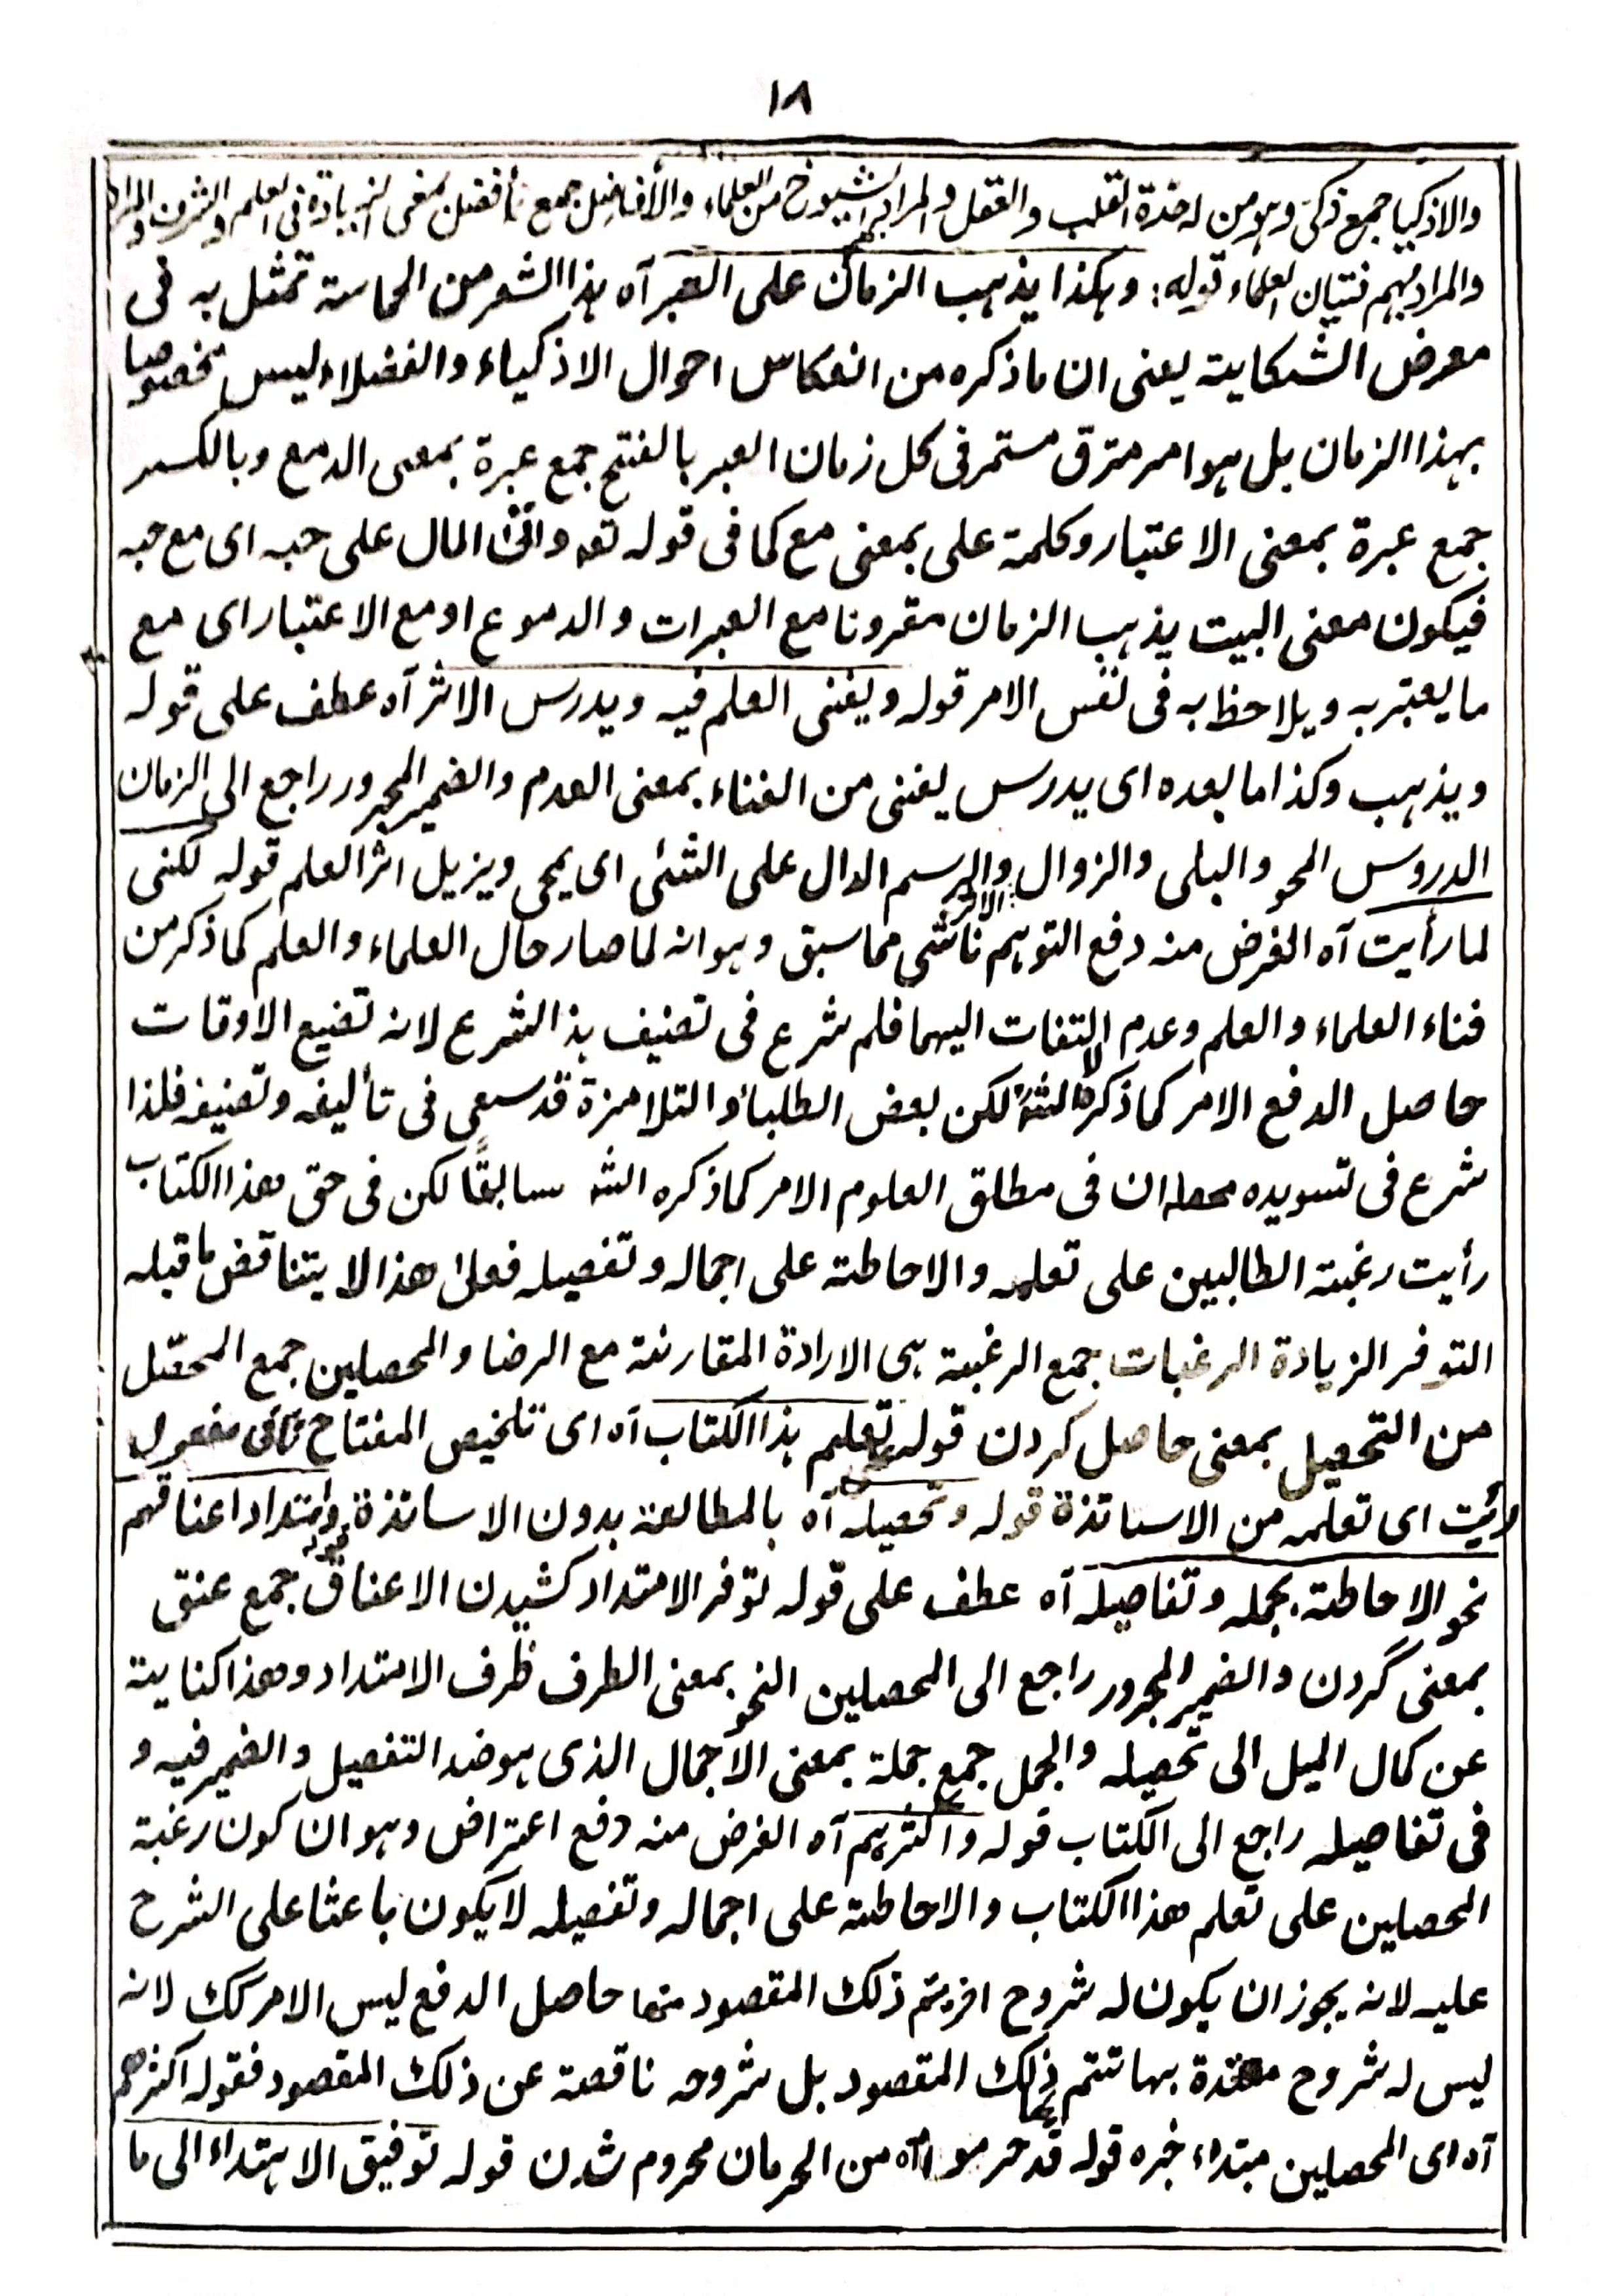 ١٨
والاذكيا جمع ذكى وهو من له حدة القلب والعقل والمراد بهم الشيوخ من العلماء والأفاضل جمع أفضل بمعنى الزيادة فى العلم والشرف والمراد
والمراد بهم فتيان العلماء قوله: وهكذا يذهب الزمان على العبر آه هذا الشعر من الحماسة تمثل به فى
معرض الشكاية يعنى ان ما ذكره من انعكاس احوال الاذكياء والفضلاء ليس مخصوصا
بهذا الزمان بل هو امر مترق مستمر فى كل زمان العبر بالفتح جمع عبرة بمعنى الدمع وبالكسر
جمع عبرة بمعنى الاعتبار وكلمة على بمعنى مع كما فى قوله تعه واتى المال على حبه اى مع حبه
فيكون معنى البيت يذهب الزمان مقرونا مع العبرات والدموع او مع الاعتبار اى مع
ما يعتبر به ويلاحظ به فى نفس الامر قوله ويفنى العلم فيه ويدرس الاثر آه عطف على قوله
ويذهب وكذا ما بعده اى يدرس يفنى من الفناء بمعنى العدم والضمير المجرور راجع الى الزمان
الدروس المحو والبلى والزوال والرسم الدال على الشئى اى يمحى ويزيل اثر العلم قوله لكنى
الاثر
لما رأيت آه الغرض منه دفع التوهم ناشى مما سبق وهو انه لما صار حال العلماء والعلم كما ذكر من
فناء العلماء والعلم وعدم التفات اليهما فلم شرع فى تصنيف هذ الشرع لانه تضيع الاوقات
حاصل الدفع الامر كما ذكره الشه لكن بعض الطلباء والتلامزة قد سعى فى تأليفه وتصنيفه فلذا
شرع فى تسويده محصله ان فى مطلق العلوم الامر كما ذكره الشه سابقًا لكن فى حق هذا الكتاب
رأيت رغبة الطالبين على تعلمه والاحاطة على اجماله وتفصيله فعلى هذا لا يتناقض ما قبله
التوفر الزيادة الرغبات جمع الرغبة هى الارادة المقارنة مع الرضا والمحصلين جمع المحصّل
من التحصيل بمعنى حاصل كردن قوله تعلم هذا الكتاب آه اى تلخيص المفتاح ثانى مفعول
رأيت اى تعلمه من الاساتذة قوله وتحصيله آه بالمطالعة بدون الاساتذة قوله وامتداد اعناقهم
نحو الاحاطة بجمله وتفاصيله آه عطف على قوله توفر الامتداد كشيدن الاعناق جمع عنق
بمعنى گردن والضمير المجرور راجع الى المحصلين النحو بمعنى الطرف ظرف الامتداد وهذا كناية
عن كمال الميل الى تحصيله والجمل جمع جملة بمعنى الاجمال الذى هو ضد التفصيل والضمير فيه و
فى تفاصيله راجع الى الكتاب قوله واكثرهم آه الغرض منه دفع اعتراض وهو ان كون رغبة
المحصلين على تعلم هذا الكتاب والاحاطة على اجماله وتفصيله لا يكون باعثا على الشرح
عليه لانه يجوز ان يكون له شروح اخر يتم ذلك المقصود منها حاصل الدفع ليس الامر كك لانه
ليس له شروح بها تتم ذلك المقصود بل شروحه ناقصة عن ذلك المقصود فقوله اكثرهم
آه اى المحصلين مبتداء خبره قوله قد حرموا آه من الحرمان محروم شدن قوله توفيق الاهتداء الى ما